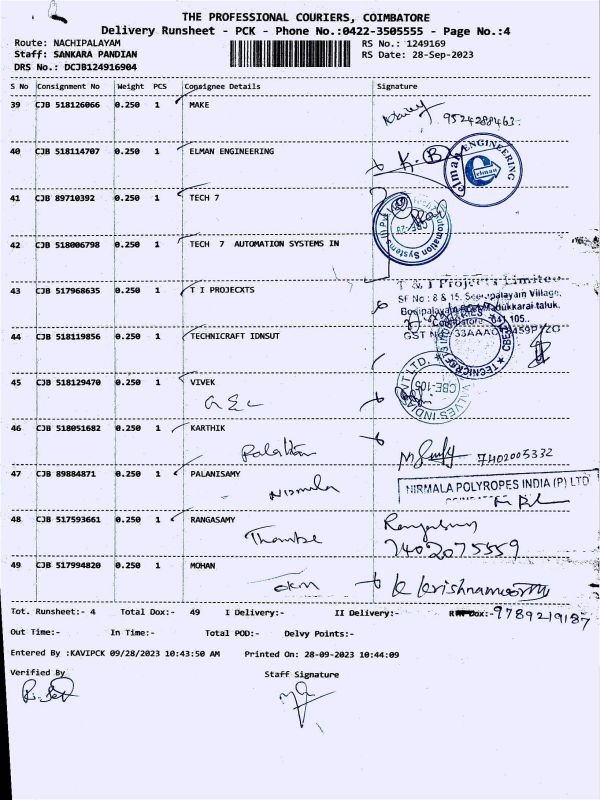 THE PROFESSIONAL COURIERS, COIMBATORE
Delivery Runsheet - PCK - Phone No.:0422-3505555 - Page No.:4
Route: NACHIPALAYAM RS No.: 1249169
Staff: SANKARA PANDIAN RS Date: 28-Sep-2023
DRS No.: DCJB124916904
S No Consignment No Weight PCS Consignee Details Signature
39 CJB 518126066 0.250 1 MAKE
9524288463.
40 CJB 518114707 0.250 1 ELMAN ENGINEERING K.B
elman ENGINEERING
elman
41 CJB 89710392 0.250 1 TECH 7
42 CJB 518006798 0.250 1 TECH 7 AUTOMATION SYSTEMS IN
Automation Systems
43 CJB 517968635 0.250 1 T I PROJECXTS
T & I Projects Limited
SF No : 8 & 15, Seerapalayam Village,
Madukkarai taluk,
Coimbatore - 641 105..
44 CJB 518119856 0.250 1 TECHNICRAFT IDNSUT
GST
45 CJB 518129470 0.250 1 VIVEK
CBE-105
VALVES INDIA PVT LTD.
46 CJB 518051682 0.250 1 KARTHIK
7402005332
47 CJB 89884871 0.250 1 PALANISAMY
Nirmala
NIRMALA POLYROPES INDIA (P) LTD
48 CJB 517593661 0.250 1 RANGASAMY
7402075559
49 CJB 517994820 0.250 1 MOHAN
ckm
K Krishnamoorthy
Tot. Runsheet:- 4 Total Dox:- 49 I Delivery:- II Delivery:- Dox:- 9789219187
Out Time:- In Time:- Total POD:- Delvy Points:-
Entered By :KAVIPCK 09/28/2023 10:43:50 AM Printed On: 28-09-2023 10:44:09
Verified By Staff Signature